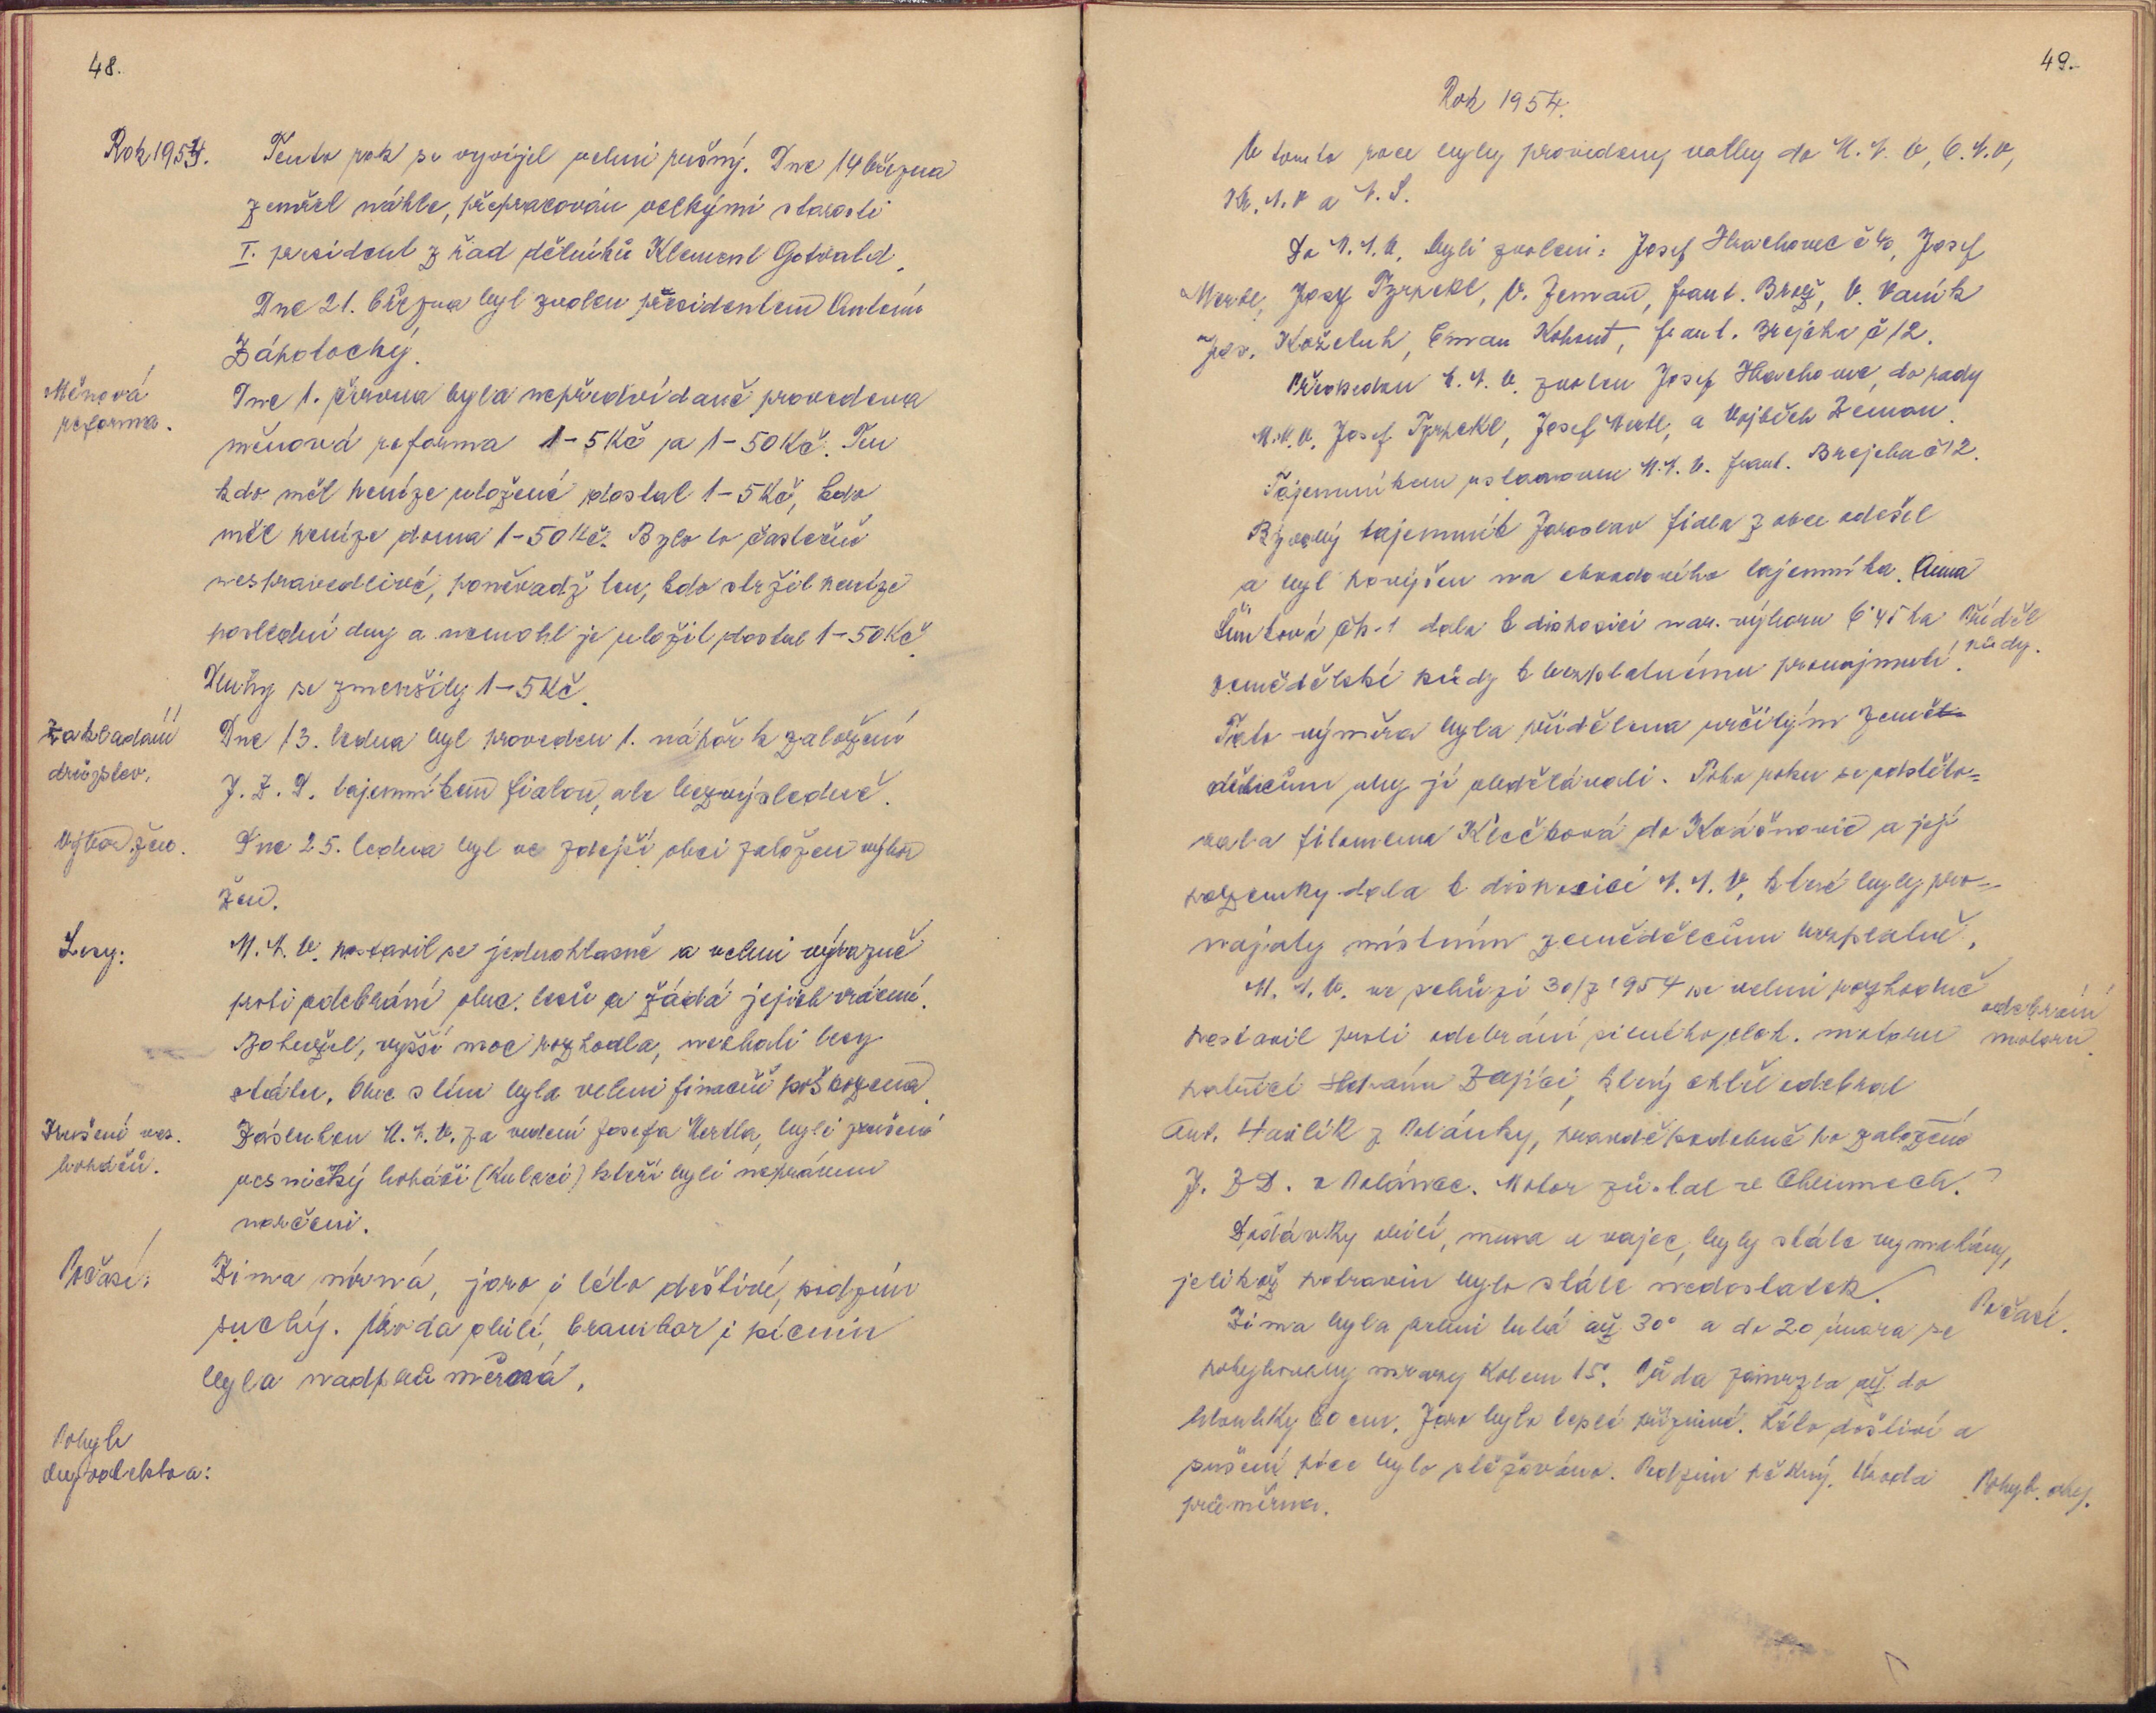 48.
Rok 1953.
Tento rok se vyvíjel velmi rušný. Dne 14 března
zemřel náhle, přepracován velkými starosti
I. president z řad dělníků Klement Gotwald.
Dne 21. března byl zvolen presidentem Antonín
Zápotocký.
Měnová
reforma.
Dne 1. června byla nepředvídaně provedena
měnová reforma 1-5 Kč a 1-50 Kč. Ten
kdo měl peníze uložené dostal 1-5 Kč, kdo
měl peníze doma 1-50 Kč. Bylo to částečně
nespravedlivé, poněvadž ten, kdo stržil peníze
poslední dny a nemohl je uložit dostal 1-50 Kč.
Dluhy se zmenšily 1-5 Kč.
Zakládání
družstev.
Dne 13. ledna byl proveden 1. nápor k založení
J. Z. D. tajemníkem Fialou, ale bezvýsledně.
Výbor žen.
Dne 25. ledna byl ve zdejší obci založen výbor
žen.
Lesy:
M. N. V. postavil se jednohlasně a velmi výrazně
proti odebrání obec. lesů a žádá jejich vrácení.
Bohužel, vyšší moc rozhodla, nechali lesy
státu. Obec s tím byla velmi finačně poškozena.
Zrušení ves.
boháčů.
Zásluhou M. N. V. za vedení Josefa Mertla, byli zrušeni
vesničtí boháči (Kulaci) kteří byli neprávem
narčeni.
Počasí:
Zima mírná, jaro i léto deštivé, podzim
suchý. Úroda obilí, brambor i pícnin
byla nadprůměrná.
Pohyb
obyvatelstva:
49.
Rok 1954.
V tomto roce byly provedeny volby do M. N. V, O. N. V,
Kr. N. V a N. S.
Do M. N. V. byli zvoleni: Josef Hrachovec č 40, Josef
Mertl, Josef Tyrpekl, V. Zeman, Frant. Brož, V. Vaník
Jos. Koželuh, Eman Kohout, Frant. Brejcha č 12.
Předsedou M. N. V. zvolen Josef Hrachovec, do rady
M. N. V. Josef Tyrpekl, Josef Mertl, a Vojtěch Zeman.
Tajemníkem ustanoven M. N. V. Frant. Brejcha č 12.
Bývalý tajemník Jaroslav Fiala z obce odešel
a byl povýšen na obvodového tajemníka. Anna
Šimková čp. 1 dala k disposici nar. výboru 6·45 ha
Příděl
půdy.
zemědělské půdy k bezplatnému pronajmutí.
Tato výměra byla přidělena určitým země-
dělcům aby jí obdělávali. Toho roku se odstěho-
vala Filomena Klečková do Kvášňovic a její
pozemky dala k disposici M. N. V, které byly pro-
najaty místním zemědělcům bezplatně.
M. N. V. ve schůzi 30/7 1954 se velmi rozhodně
odebrání
motoru.
postavil proti odebrání silného elek. motoru
patřící Štěpánu Zajíci, který chtěl odebrat
Ant. Havlík z Polánky, pravděpodobně po založení
J. Z D. v Polánce. Motor zůstal v Chlumech.
Dodávky obilí, masa a vajec, byly stále vymáhány,
jelikož potravin bylo stále nedostatek.
Počasí.
Zima byla velmi tuhá až 30° a do 20 února se
pohybovaly mrazy kolem 15°. Půda zamrzla až do
hloubky 80 cm. Jaro bylo teplé příznivé. Léto deštivé a
sušení píce bylo stěžováno. Podzim pěkný. Úroda
průměrná.
Pohyb. oby.